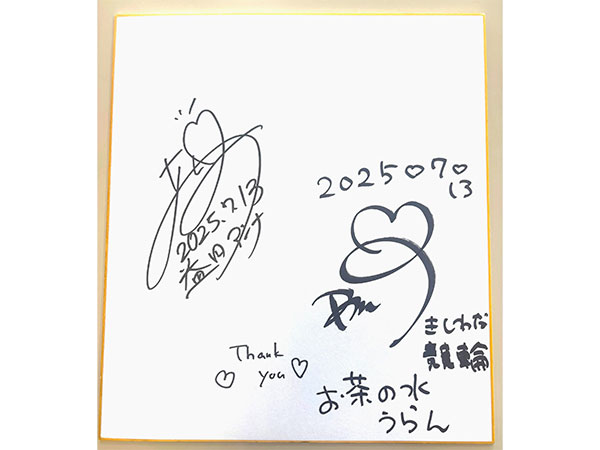 2025.7.13
益田アンナ
2025♡7♡13
きしわだ
競輪
お茶の水
うらん
Thank
you